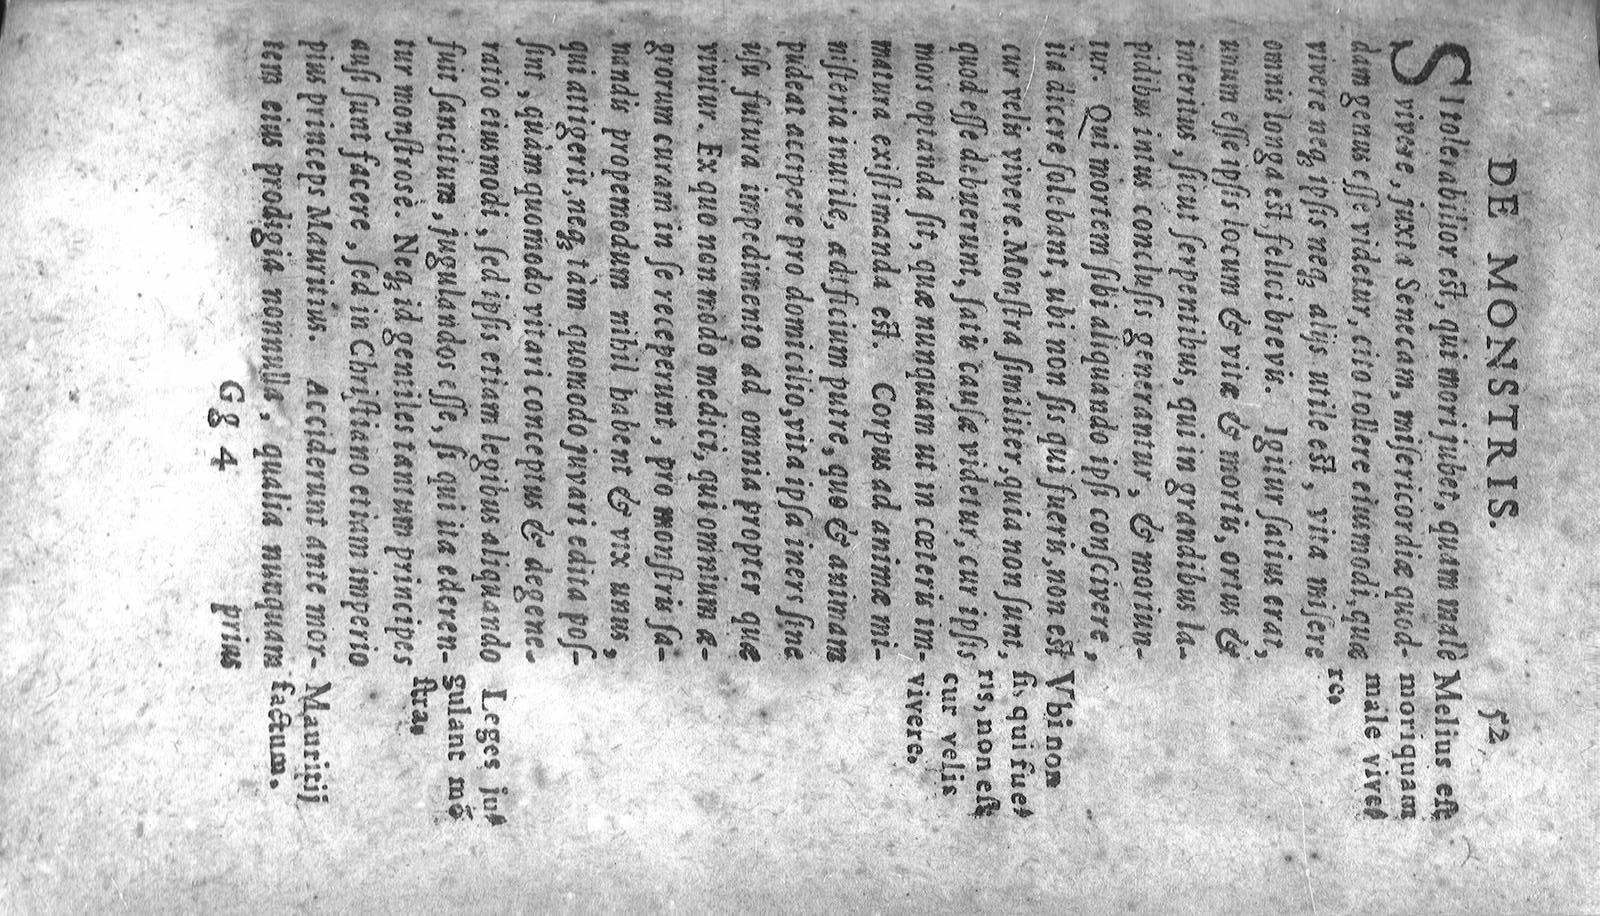 DE MONSTRIS. 52
SI tolerabilior est, qui mori jubet, quam malè
vivere, juxta Senecam, misericordiæ quod-
dam genus esse videtur, citò tollere eiusmodi, quæ
vivere neq; ipsis neq; alijs utile est, vita miserè
omnis longa est, felici brevis. Igitur satius erat,
unum esse ipsis locum & vitæ & mortis, ortus &
interitus, sicut serpentibus, qui in grandibus la-
pidibus intus conclusis generantur, & moriun-
tur. Qui mortem sibi aliquando ipsi conscivere,
ita dicere solebant, ubi non sis qui fueris, non est
cur velis vivere. Monstra similiter, quia non sunt,
quod esse debuerunt, satis causæ videtur, cur ipsis
mors optanda sit, quæ nunquam ut in cæteris im-
matura existimanda est. Corpus ad animæ mi-
nisteria inutile, ædificium putre, quo & animam
pudeat accipere pro domicilio, vita ipsa iners sine
usu futura impedimento ad omnia propter quæ
vivitur. Ex quo non modo medici, qui omnium æ-
grorum curam in se receperunt, pro monstris sa-
nandis propemodum nihil habent & vix unus,
qui attigerit, neq; tàm quomodo juvari edita pos-
sint, quàm quomodo vitari conceptus & degene-
ratio eiusmodi, sed ipsis etiam legibus aliquando
fuit sancitum, jugulandos esse, si qui ita ederen-
tur monstrosè. Neq; id gentiles tantum principes
ausi sunt facere, sed in Christiano etiam imperio
pius princeps Mauritius. Acciderunt ante mor-
tem eius prodigia nonnulla, qualia nunquam
Gg 4 prius
Melius est
moriquam
male vive-
re.
Vbi non
si, qui fue-
ris, non est
cur velis
vivere.
Leges ju-
gulant mõ
stra.
Mauritij
factum.